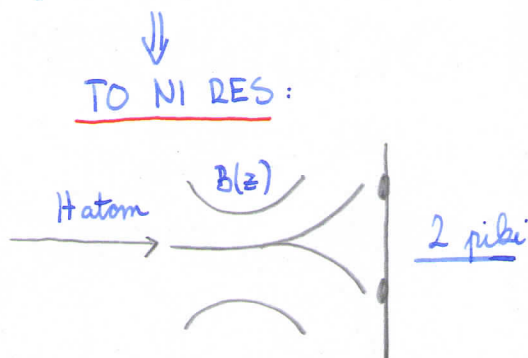 TO NI RES:
B(z)
H atom
2 piki